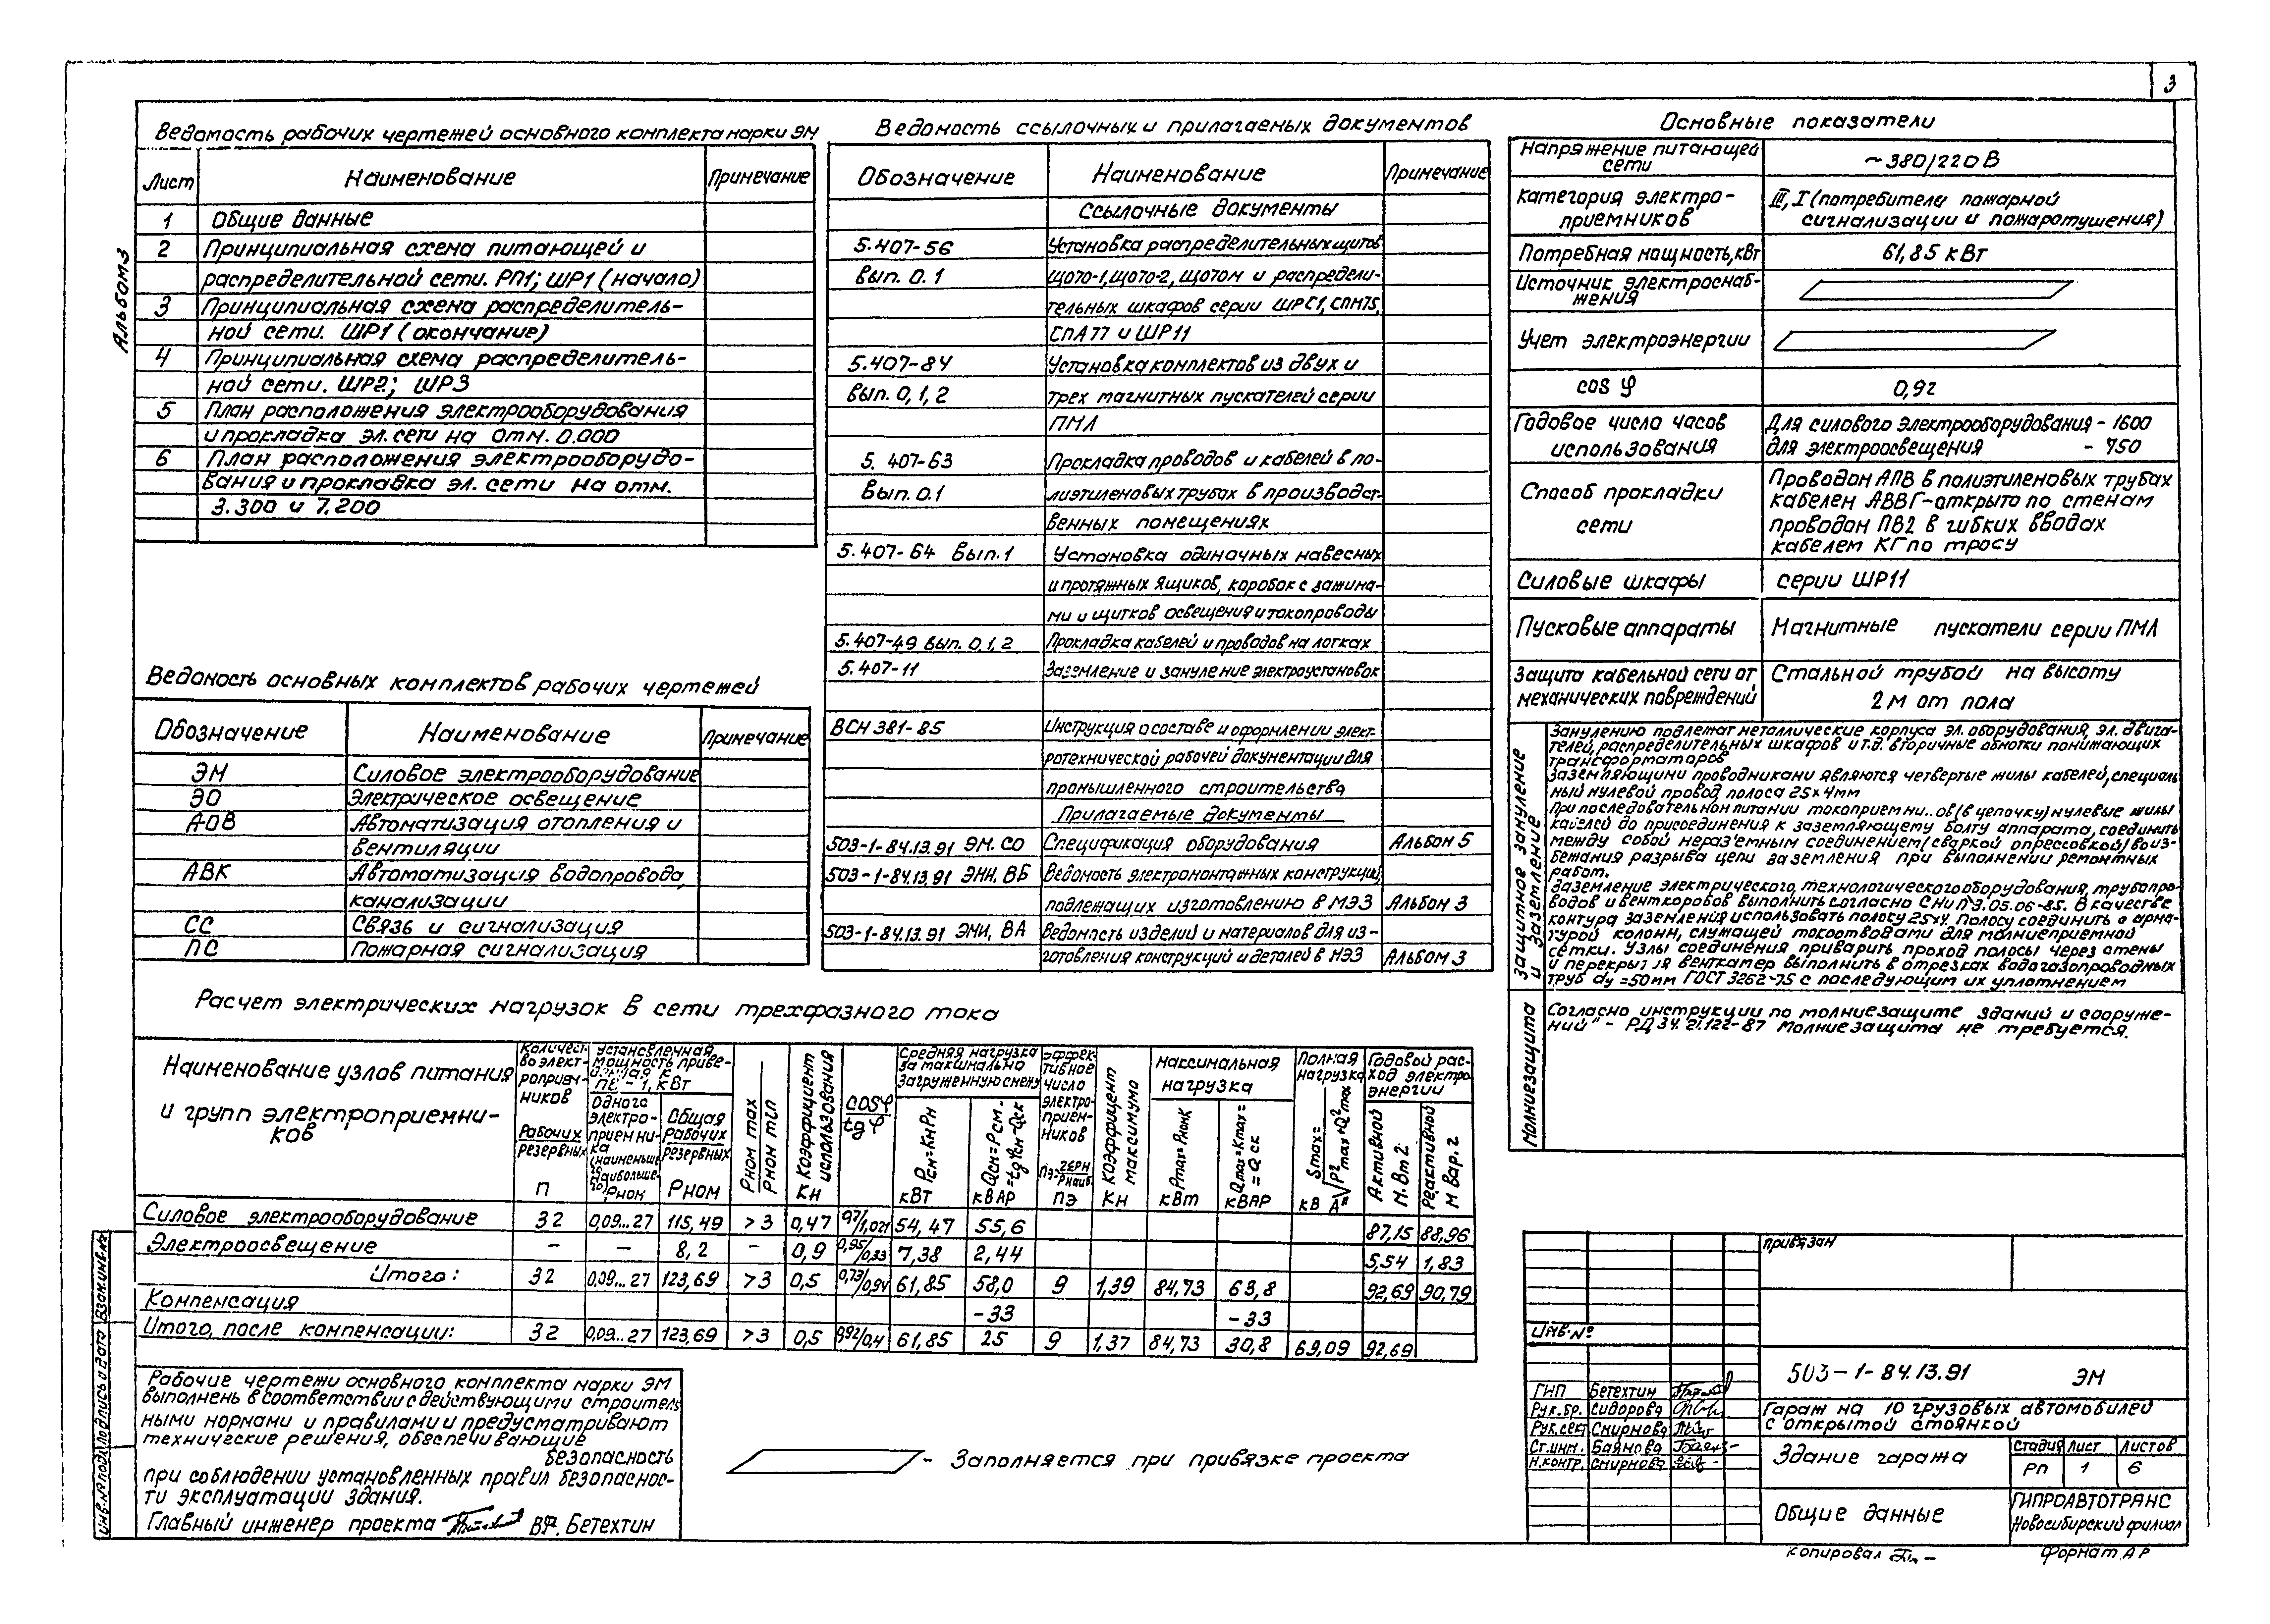 3
Альбом 3
Ведомость рабочих чертежей основного комплекта марки ЭМ
Лист Наименование Примечание
1 Общие данные
2 Принципиальная схема питающей и
распределительной сети. РП1; ШР1 (начало)
3 Принципиальная схема распределитель-
ной сети. ШР1 (окончание)
4 Принципиальная схема распределитель-
ной сети. ШР2; ШР3
5 План расположения электрооборудования
и прокладка эл. сети на отм. 0.000
6 План расположения электрооборудо-
вания и прокладка эл. сети на отм.
3.300 и 7.200
Ведомость основных комплектов рабочих чертежей
Обозначение Наименование Примечание
ЭМ Силовое электрооборудование
ЭО Электрическое освещение
АОВ Автоматизация отопления и
вентиляции
АВК Автоматизация водопровода,
канализации
СС Связь и сигнализация
ПС Пожарная сигнализация
Ведомость ссылочных и прилагаемых документов
Обозначение Наименование Примечание
Ссылочные документы
5.407-56 Установка распределительных щитов
вып. 0.1 ЩО70-1, ЩО70-2, ЩО70М и распредели-
тельных шкафов серии ШРС1, СПМ75,
СПА77 и ШР11
5.407-84 Установка комплектов из двух и
вып. 0,1,2 трех магнитных пускателей серии
ПМЛ
5.407-63 Прокладка проводов и кабелей в по-
вып. 0.1 лиэтиленовых трубах в производст-
венных помещениях
5.407-64 вып.1 Установка одиночных навесных
и протяжных ящиков, коробок с зажима-
ми и щитков освещения и токопроводы
5.407-49 вып. 0,1,2 Прокладка кабелей и проводов на лотках
5.407-11 Заземление и зануление электроустановок
ВСН 381-85 Инструкция о составе и оформлении элект-
ротехнической рабочей документации для
промышленного строительства
Прилагаемые документы
503-1-84.13.91 ЭМ. СО Спецификация оборудования Альбом 5
503-1-84.13.91 ЭМИ. ВБ Ведомость электромонтажных конструкций,
подлежащих изготовлению в МЭЗ Альбом 3
503-1-84.13.91 ЭМИ. ВА Ведомость изделий и материалов для из-
готовления конструкций и деталей в МЭЗ Альбом 3
Основные показатели
Напряжение питающей сети ~380/220 В
Категория электро-приемников III, I (потребители пожарной
сигнализации и пожаротушения)
Потребная мощность, кВт 61,85 кВт
Источник электроснаб-жения
Учет электроэнергии
cos φ 0,92
Годовое число часов Для силового электрооборудования - 1600
использования для электроосвещения - 750
Способ прокладки сети Проводом АПВ в полиэтиленовых трубах
кабелем АВВГ-открыто по стенам
проводом ПВ2 в гибких вводах
кабелем КГ по тросу
Силовые шкафы серии ШР11
Пусковые аппараты Магнитные пускатели серии ПМЛ
Защита кабельной сети от Стальной трубой на высоту
механических повреждений 2 м от пола
Защитное зануление и заземление
Занулению подлежат металлические корпуса эл. оборудования, эл. двига-
телей, распределительных шкафов и т.д. вторичные обмотки понижающих
трансформаторов
Заземляющими проводниками являются четвертые жилы кабелей, специаль
ный нулевой провод полоса 25х4мм
При последовательном питании токоприемни..ов (в цепочку) нулевые жилы
кабелей до присоединения к заземляющему болту аппарата, соединить
между собой неразъемным соединением (сваркой опрессовкой) во из-
бежания разрыва цепи заземления при выполнении ремонтных
работ.
Заземление электрического, технологического оборудования, трубопро-
водов и венткоробов выполнить согласно СНиП 3.05.06-85. В качестве
контура заземления использовать полосу 25х4. Полосу соединить с арма-
турой колонн, служащей токоотводами для молниеприемной
сетки. Узлы соединения приварить проход полосы через стены
и перекрытия венткамер выполнить в отрезках водогазопроводных
труб dу=50мм ГОСТ 3262-75 с последующим их уплотнением
Молниезащита
Согласно инструкции по молниезащите зданий и сооруже-
ний" - РД 34.21.122-87 Молниезащита не требуется.
Расчет электрических нагрузок в сети трехфазного тока
Наименование узлов питания и групп электроприемни-ков
Количест-во элект-роприем-ников Рабочих резервных п
Установленная мощность приве- ПВ - 1, кВт
Одного электро-приемни-ка (наименьше-го наибольше-го) Рном
Общая Рабочих резервных Рном
Рном max Рном min
Коэффициент использования Кн
cosφ tgφ
Средняя нагрузка за максимально загруженную смену
Рсм=КнРн кВт
Qсм=Рсм·tgφсм-Qск кВАР
Эффек-тивное число электро-прием-ников пэ
Коэффициент максимума Кн
Максимальная нагрузка
кВт
кВАР
Полная нагрузка Smax=√P²max+Q²max
Годовой рас-ход электро энергии
Активной М.Вт г.
Реактивной М Вар. г
Силовое электрооборудование 32 0,09...27 115,49 >3 0,47 97/1,021 54,47 55,6 87,15 88,96
Электроосвещение – – 8,2 – 0,9 0,95/0,33 7,38 2,44 5,54 1,83
Итого: 32 0,09...27 123,69 >3 0,5 0,73/0,94 61,85 58,0 9 1,39 84,73 63,8 92,69 90,79
Компенсация -33 -33
Итого, после компенсации: 32 0,09...27 123,69 >3 0,5 0,92/0,4 61,85 25 9 1,37 84,73 30,8 69,09 92,69
Рабочие чертежи основного комплекта марки ЭМ
выполнень в соответствии с действующими строитель
ными нормами и правилами и предусматривают
технические решения, обеспечивающие
безопасность
при соблюдении установленных правил безопаснос-
ти эксплуатации здания.
Главный инженер проекта В.Ф. Бетехтин
- Заполняется при привязке проекта
Инв.№ подл. Подпись и дата Взам.инв.№
Привязан
Инв.№
503-1-84.13.91 ЭМ
ГИП Бетехтин
Рук.бр. Сидорова
Рук.сект Смирнова
Ст.инж. Баянова
Н.контр. Смирнова
Гараж на 10 грузовых автомобилей
с открытой стоянкой
Здание гаража
Стадия Лист Листов
РП 1 6
Общие данные
ГИПРОАВТОТРАНС
Новосибирский филиал
Копировал
Формат